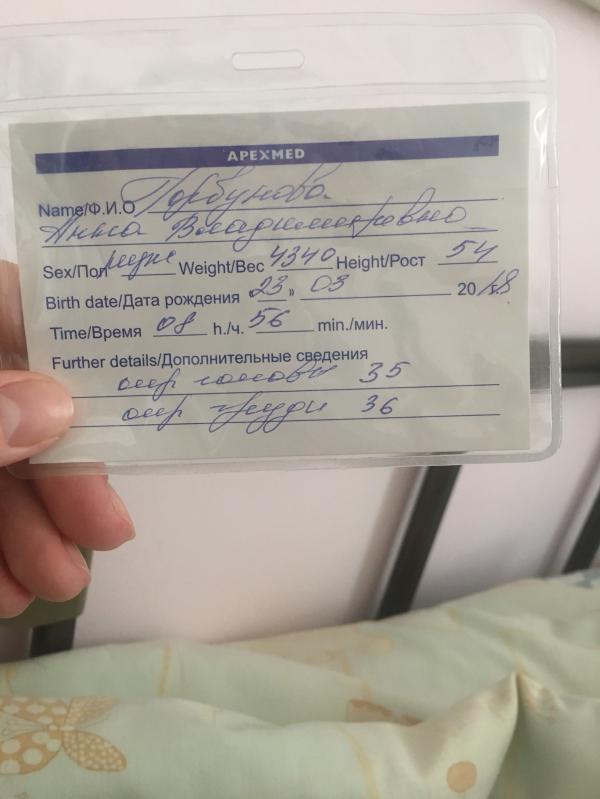 APEXMED
Name/Ф.И.О Горбунова
Анна Владимировна
Sex/Пол муж Weight/Вес 4340 Height/Рост 54
Birth date/Дата рождения "23" 03 2018
Time/Время 08 h./ч. 56 min./мин.
Further details/Дополнительные сведения
окр головы 35
окр груди 36